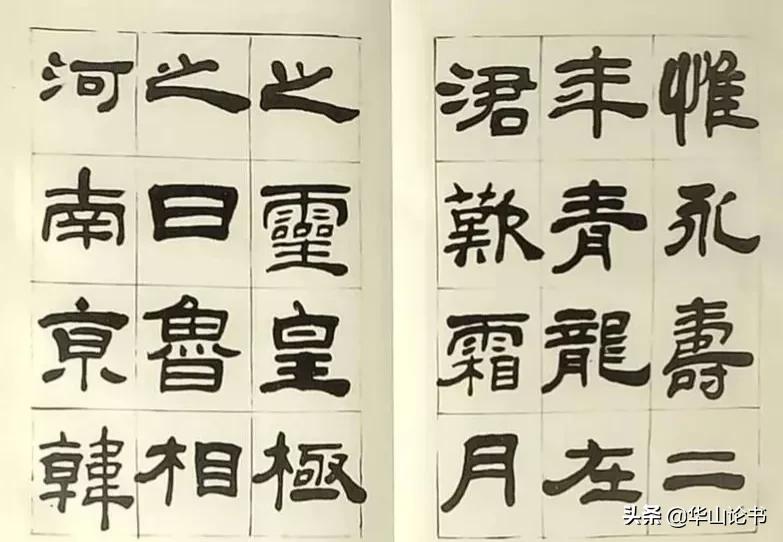 惟永壽二
年青龍在
涒歎霜月
之靈皇極
之日魯相
河南京韓
头条 @华山论书